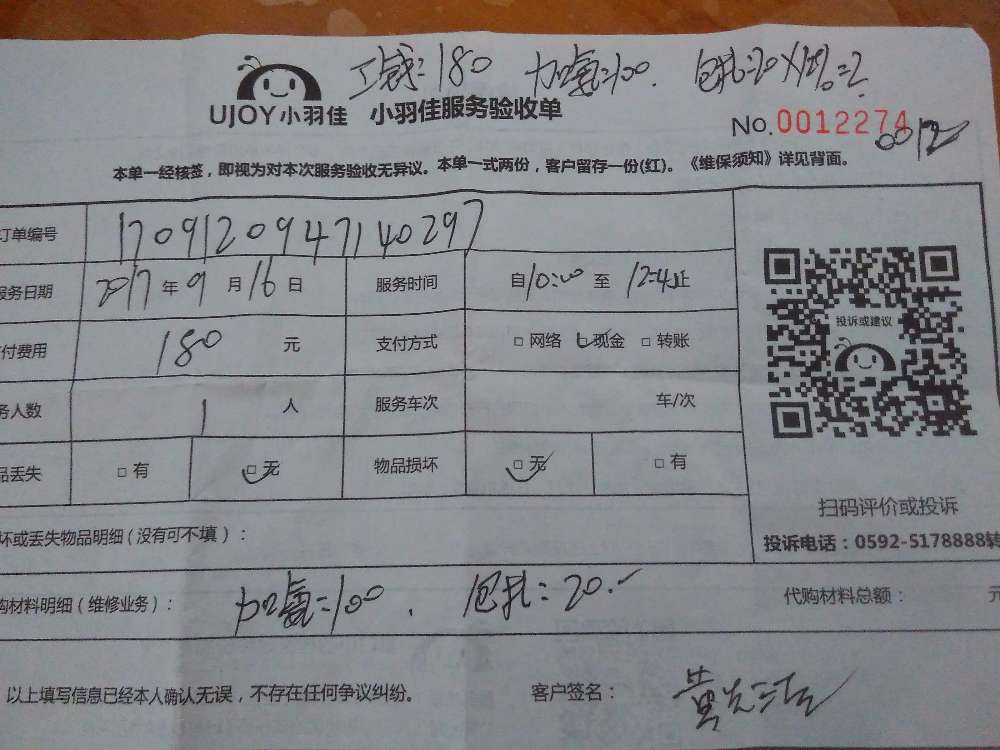 加氨=100.
UJOY 小羽佳 小羽佳服务验收单
No.0012274
本单一经核签，即视为对本次服务验收无异议。本单一式两份，客户留存一份(红)。《维保须知》详见背面。
订单编号 170912094714 0297
服务日期 2017年9月16日 服务时间 自10:00至12:4止
付费用 180 元 支付方式 □网络 □现金 □转账
务人数 1 人 服务车次 车/次
品丢失 □有 □无 物品损坏 □无 □有
投诉或建议
扫码评价或投诉
投诉电话：0592-5178888转
坏或丢失物品明细（没有可不填）：
购材料明细（维修业务）： 加氨=100. 包扎=20. 代购材料总额： 元
以上填写信息已经本人确认无误，不存在任何争议纠纷。 客户签名：